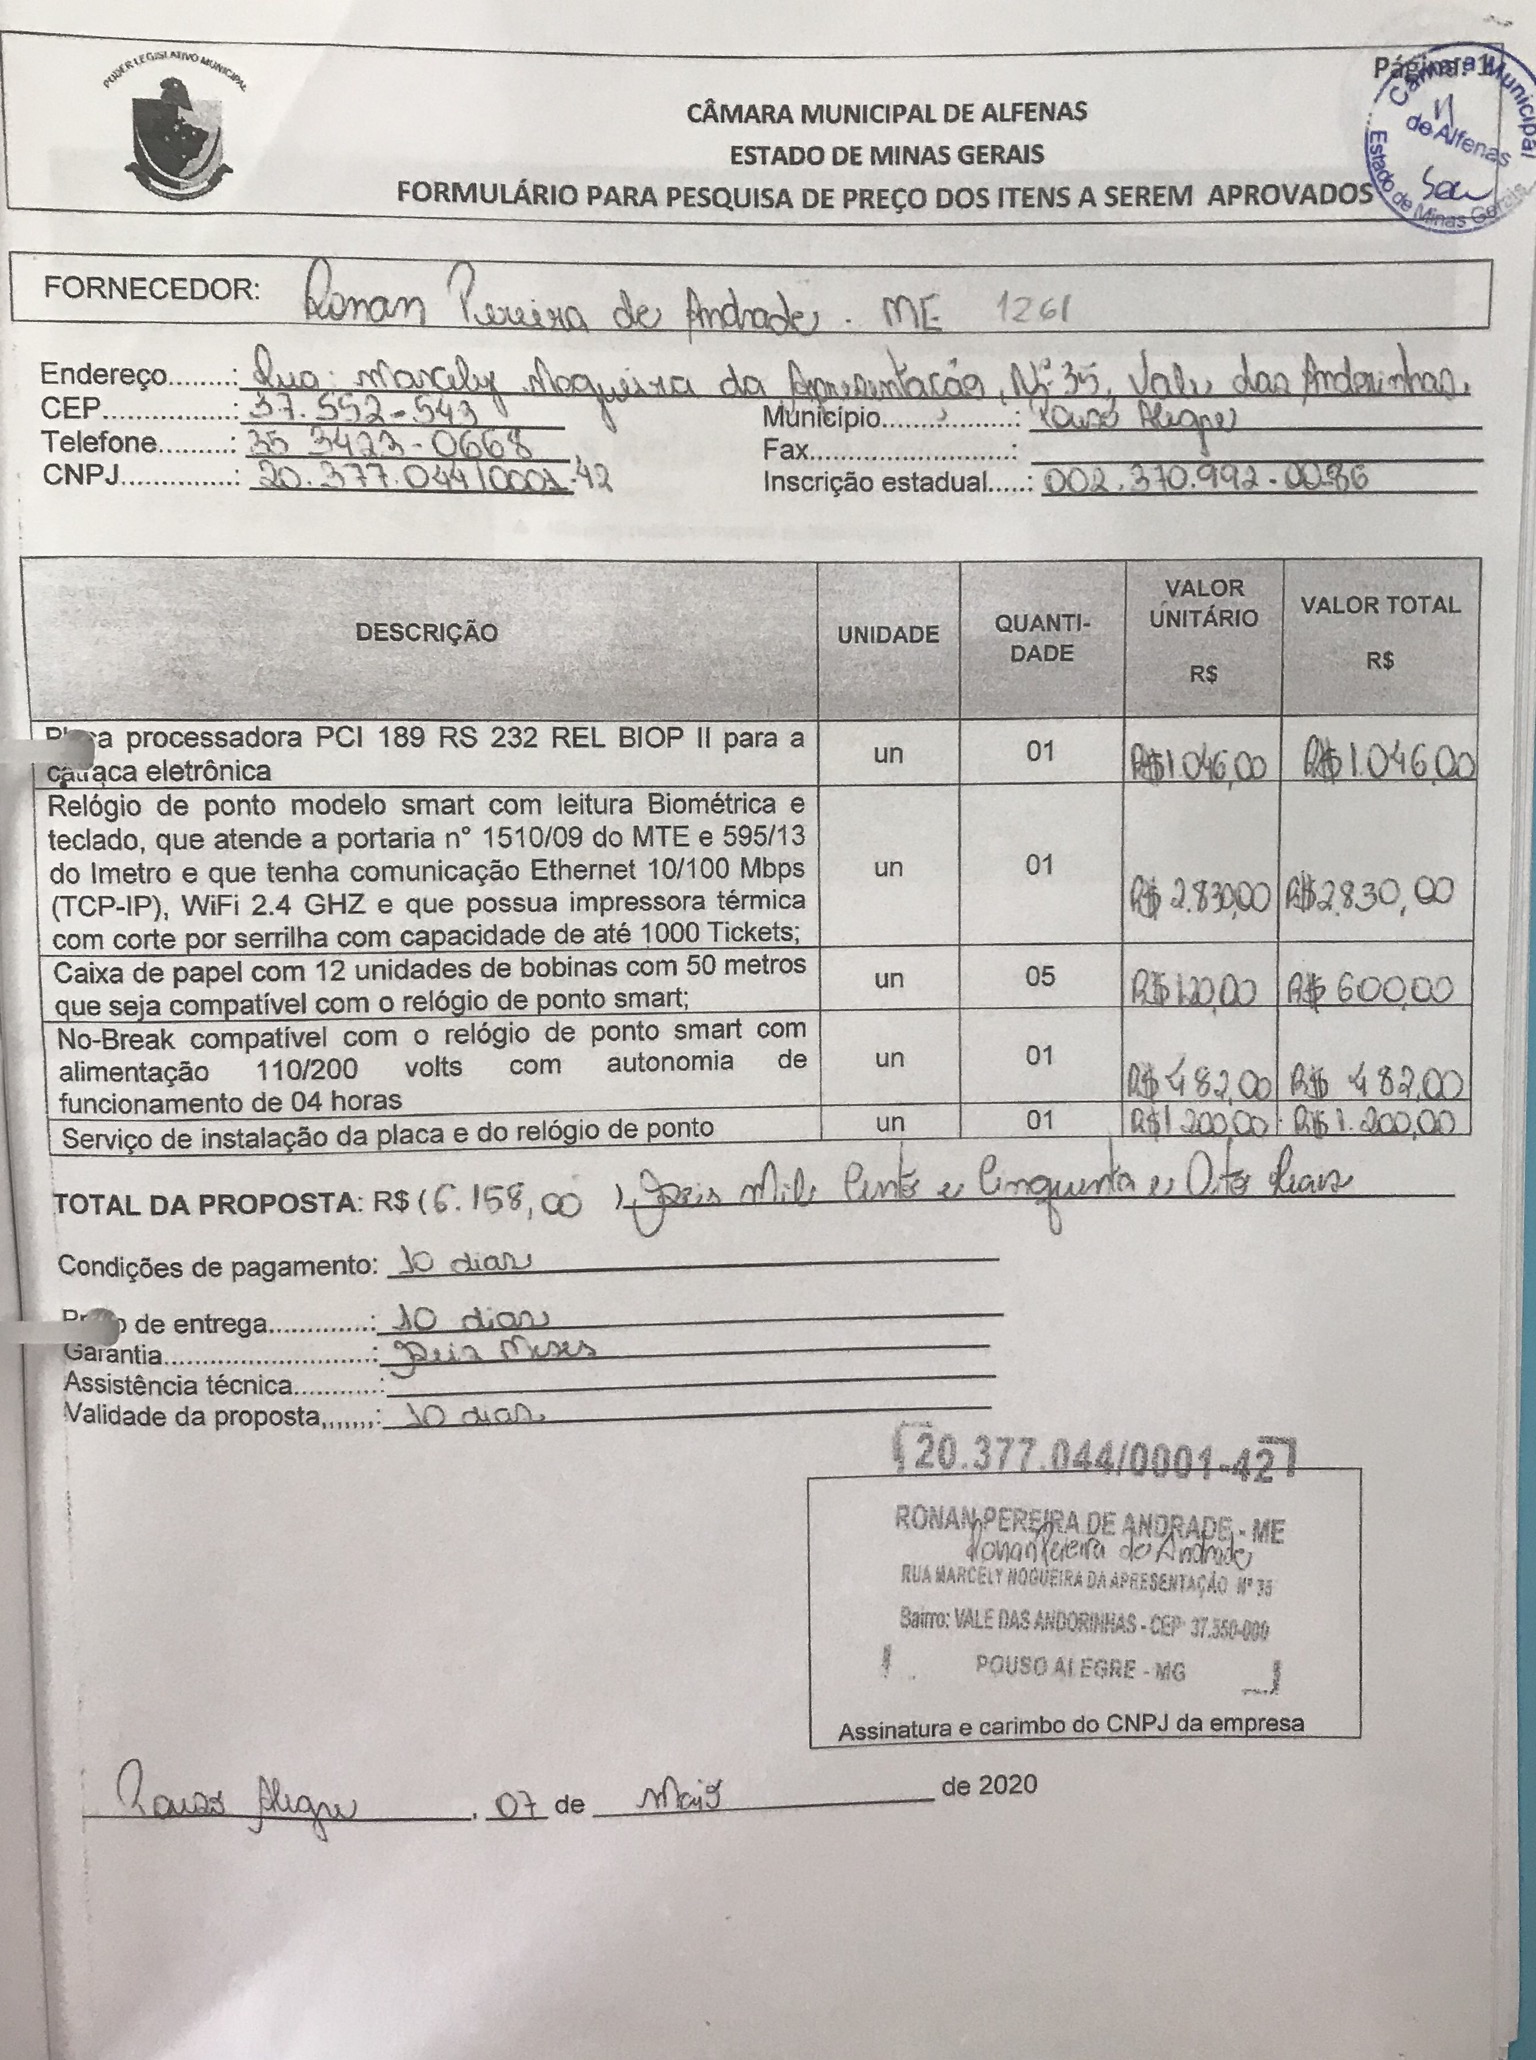 PODER LEGISLATIVO MUNICIPAL
Página: 1
CÂMARA MUNICIPAL DE ALFENAS
ESTADO DE MINAS GERAIS
FORMULÁRIO PARA PESQUISA DE PREÇO DOS ITENS A SEREM APROVADOS
Câmara Municipal
11
de Alfenas
Estado de Minas Gerais
FORNECEDOR: Ronan Pereira de Andrade. ME 1261
Endereço........: Rua: Marcely Nogueira da Apresentação, Nº 35, Vale das Andorinhas.
CEP...............: 37.552-543 Município.....................: Pouso Alegre
Telefone.........: 35 3423-0668 Fax...........................:
CNPJ..............: 20.377.044/0001-42 Inscrição estadual.....: 002.370.992-0086
DESCRIÇÃO UNIDADE QUANTI-DADE VALOR UNITÁRIO R$ VALOR TOTAL R$
a processadora PCI 189 RS 232 REL BIOP II para a
catraca eletrônica un 01 R$1.046,00 R$1.046,00
Relógio de ponto modelo smart com leitura Biométrica e
teclado, que atende a portaria n° 1510/09 do MTE e 595/13
do Imetro e que tenha comunicação Ethernet 10/100 Mbps un 01
(TCP-IP), WiFi 2.4 GHZ e que possua impressora térmica R$ 2.830,00 R$2.830,00
com corte por serrilha com capacidade de até 1000 Tickets;
Caixa de papel com 12 unidades de bobinas com 50 metros un 05
que seja compatível com o relógio de ponto smart; R$120,00 R$ 600,00
No-Break compatível com o relógio de ponto smart com
alimentação 110/200 volts com autonomia de un 01 R$ 482,00 R$ 482,00
funcionamento de 04 horas
Serviço de instalação da placa e do relógio de ponto un 01 R$1.200,00 R$1.200,00
TOTAL DA PROPOSTA: R$ (6.158,00 ) Seis Mil Cento e Cinquenta e Oito Reais
Condições de pagamento: 10 dias
de entrega.............: 10 dias
Garantia...........................: Seis Meses
Assistência técnica...........:
Validade da proposta,,,,,,,: 10 dias
20.377.044/0001-42
RONAN PEREIRA DE ANDRADE - ME
Ronan Pereira de Andrade
RUA MARCELY NOGUEIRA DA APRESENTAÇÃO Nº 35
Bairro: VALE DAS ANDORINHAS - CEP 37.550-000
POUSO ALEGRE - MG
Assinatura e carimbo do CNPJ da empresa
Pouso Alegre, 07 de Maio de 2020